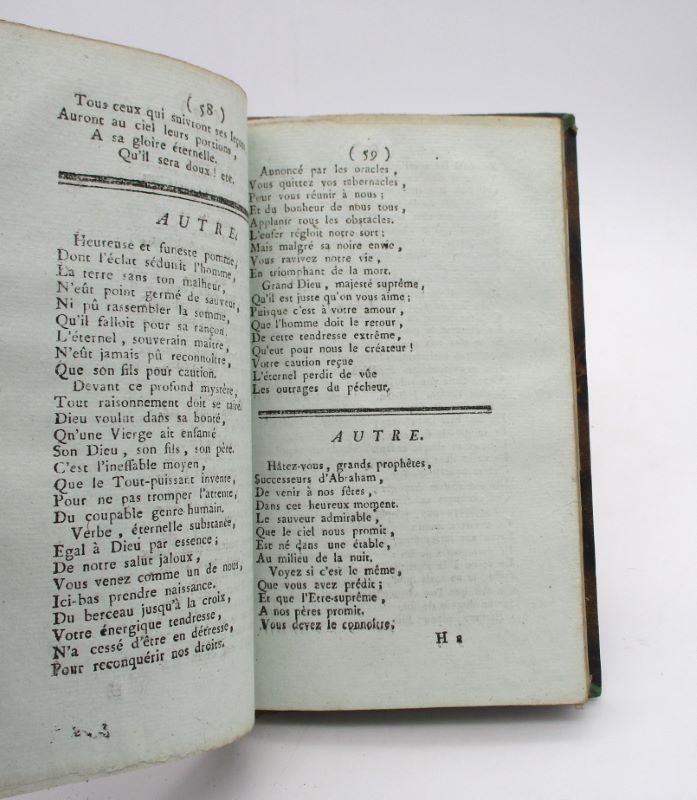 ( 58 )
Tous ceux qui suivront ses leçons
Auront au ciel leurs portions,
A sa gloire éternelle.
Qu'il sera doux! etc.
AUTRE.
Heureuse et funeste pomme,
Dont l'éclat séduinit l'homme,
La terre sans ton malheur,
N'eût point germé de sauveur,
Ni pû rassembler la somme,
Qu'il falloit pour sa rançon.
L'éternel, souverain maître,
N'eût jamais pû reconnoître,
Que son fils pour caution.
Devant ce profond mystère,
Tout raisonnement doit se taire.
Dieu voulut dans sa bonté,
Qn'une Vierge ait enfanté
Son Dieu, son fils, son père.
C'est l'ineffable moyen,
Que le Tout-puissant invente,
Pour ne pas tromper l'attente,
Du coupable genre humain.
Verbe, éternelle substance,
Egal à Dieu par essence;
De notre salut jaloux,
Vous venez comme un de nous,
Ici-bas prendre naissance.
Du berceau jusqu'à la croix,
Votre énergique tendresse,
N'a cessé d'être en détresse,
Pour reconquérir nos droits.
( 59 )
Annoncé par les oracles,
Vous quittez vos tabernacles,
Pour vous réunir à nous;
Et du bonheur de nous tous,
Applanir tous les obstacles.
L'enfer régloit notre sort;
Mais malgré sa noire envie,
Vous ravivez notre vie,
En triomphant de la mort.
Grand Dieu, majesté suprême,
Qu'il est juste qu'on vous aime;
Puisque c'est à votre amour,
Que l'homme doit le retour,
De cette tendresse extrême,
Qu'eut pour nous le créateur!
Votre caution reçue
L'éternel perdit de vûe
Les outrages du pécheur.
AUTRE.
Hâtez-vous, grands prophêtes,
Successeurs d'Abraham,
De venir à nos fêtes,
Dans cet heureux moment.
Le sauveur admirable,
Que le ciel nous promit,
Est né dans une étable,
Au milieu de la nuit.
Voyez si c'est le même,
Que vous avez prédit;
Et que l'Etre-suprême,
A nos pères promit.
Vous devez le connoître;
H 2